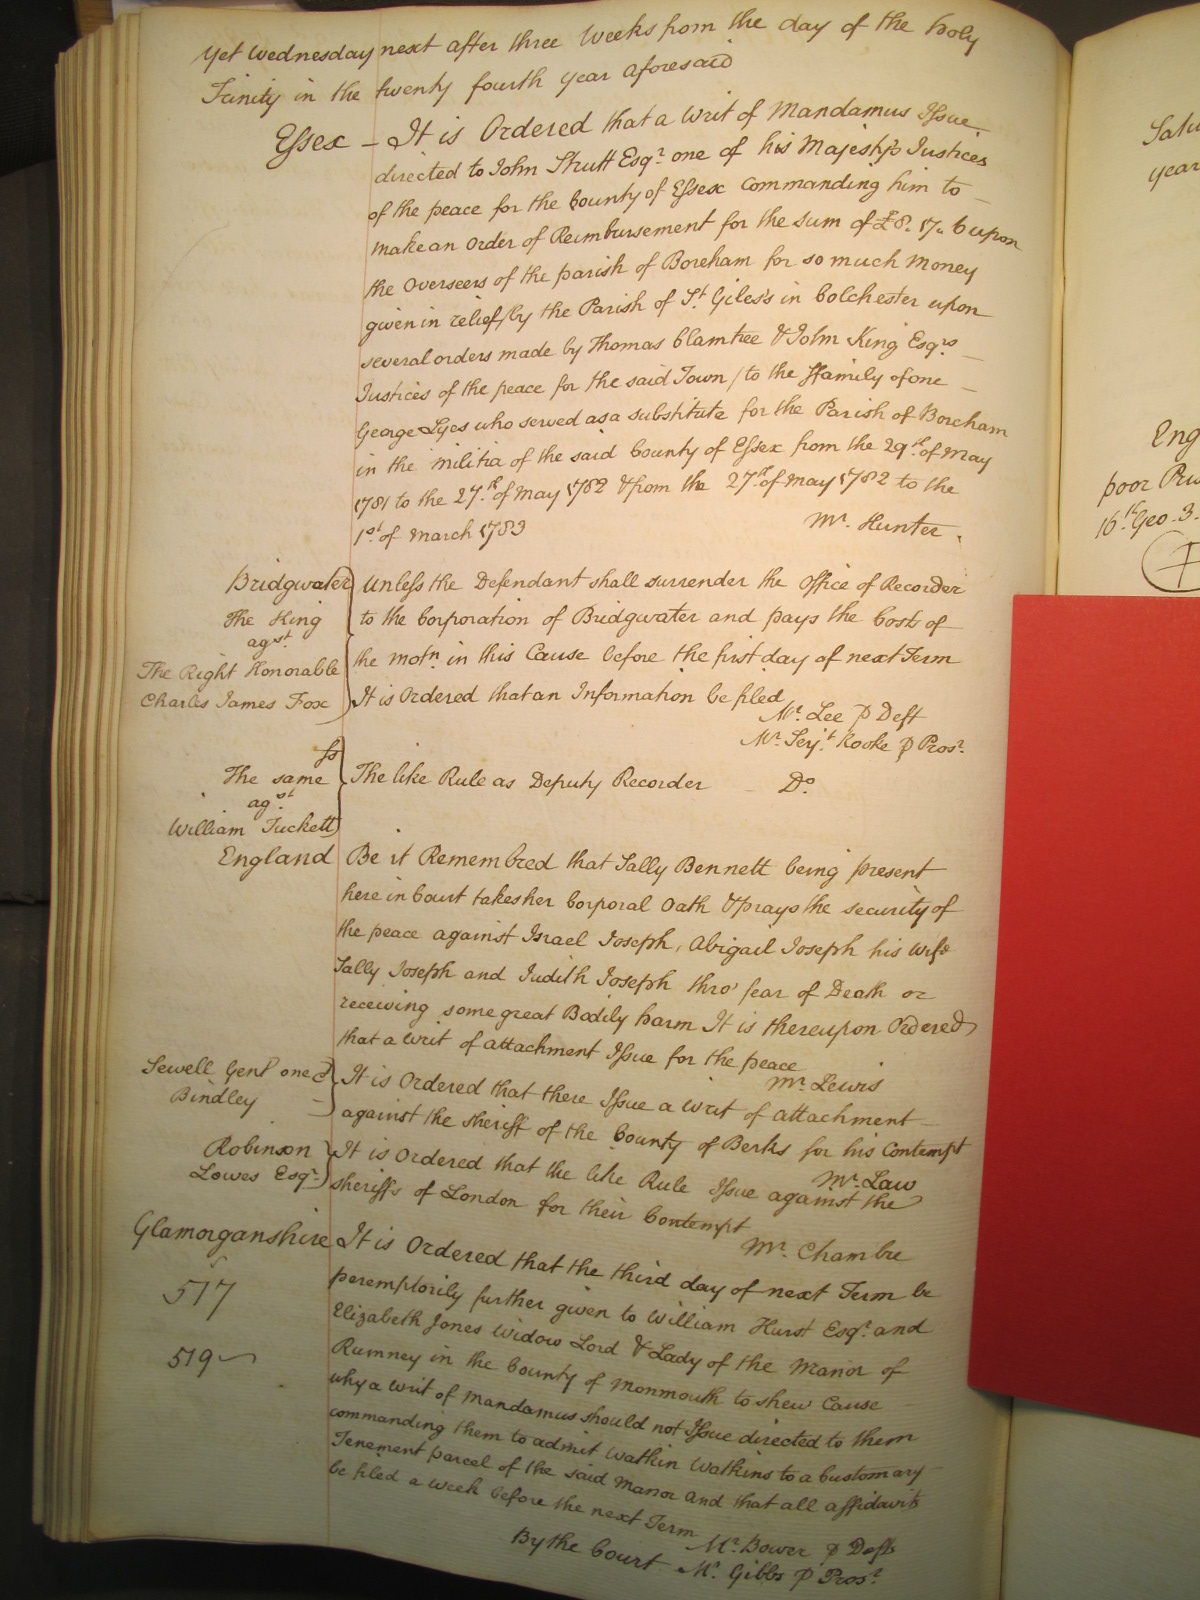 Yet Wednesday next after three Weeks from the day of the Holy
Trinity in the twenty fourth year aforesaid
Essex – It is Ordered that a Writ of Mandamus Issue
directed to John Strutt Esqr. one of his Majesty's Justices
of the peace for the County of Essex Commanding him to
make an Order of Reimbursement for the sum of £8. 17. 6 upon
the Overseers of the parish of Boreham for so much Money
given in relief /by the Parish of St. Giles's in Colchester upon
several orders made by Thomas Clamtree & John King Esqrs.
Justices of the peace for the said Town / to the ffamily of one
George Lyes who served as a substitute for the Parish of Boreham
in the Militia of the said County of Essex from the 29th. of May
1781 to the 27th. of May 1782 & from the 27th. of May 1782 to the
1st. of March 1783
Mr. Hunter.
Bridgwater
The King
agst.
The Right Honorable
Charles James Fox
Unless the Defendant shall surrender the Office of Recorder
to the Corporation of Bridgwater and pays the Costs of
the motn. in this Cause before the first day of next Term
It is Ordered that an Information be filed
Mr. Lee p Deft
Mr. Serjt. Rooke p Prosr.
ss
The same
agst.
William Tuckett
The like Rule as Deputy Recorder Do.
England
Be it Remembred that Sally Bennett being present
here in Court takes her Corporal Oath & prays the security of
the peace against Israel Joseph, Abigail Joseph his Wife
Sally Joseph and Judith Joseph thro' fear of Death or
receiving some great Bodily harm It is thereupon Ordered
that a Writ of attachment Issue for the peace
Mr. Lewis
Sewell Gent one &
Bindley
It is Ordered that there Issue a Writ of attachment
against the Sheriff of the County of Berks for his Contempt
Mr. Law
Robinson
Lowes Esqr.
It is Ordered that the like Rule Issue against the
sheriffs of London for their Contempt
Mr. Chambre
Glamorganshire
517
519
It is Ordered that the third day of next Term be
peremptorily further given to William Hurst Esqr. and
Elizabeth Jones Widow Lord & Lady of the Manor of
Rumney in the County of Monmouth to shew Cause
why a Writ of Mandamus should not Issue directed to them
commanding them to admit Watkin Watkins to a Customary
Tenement parcel of the said Manor and that all affidavits
be filed a week before the next Term
Mr. Bower p Defts
By the Court Mr. Gibbs p Prosr.
year
Eng
poor Pri
16th. Geo. 3.